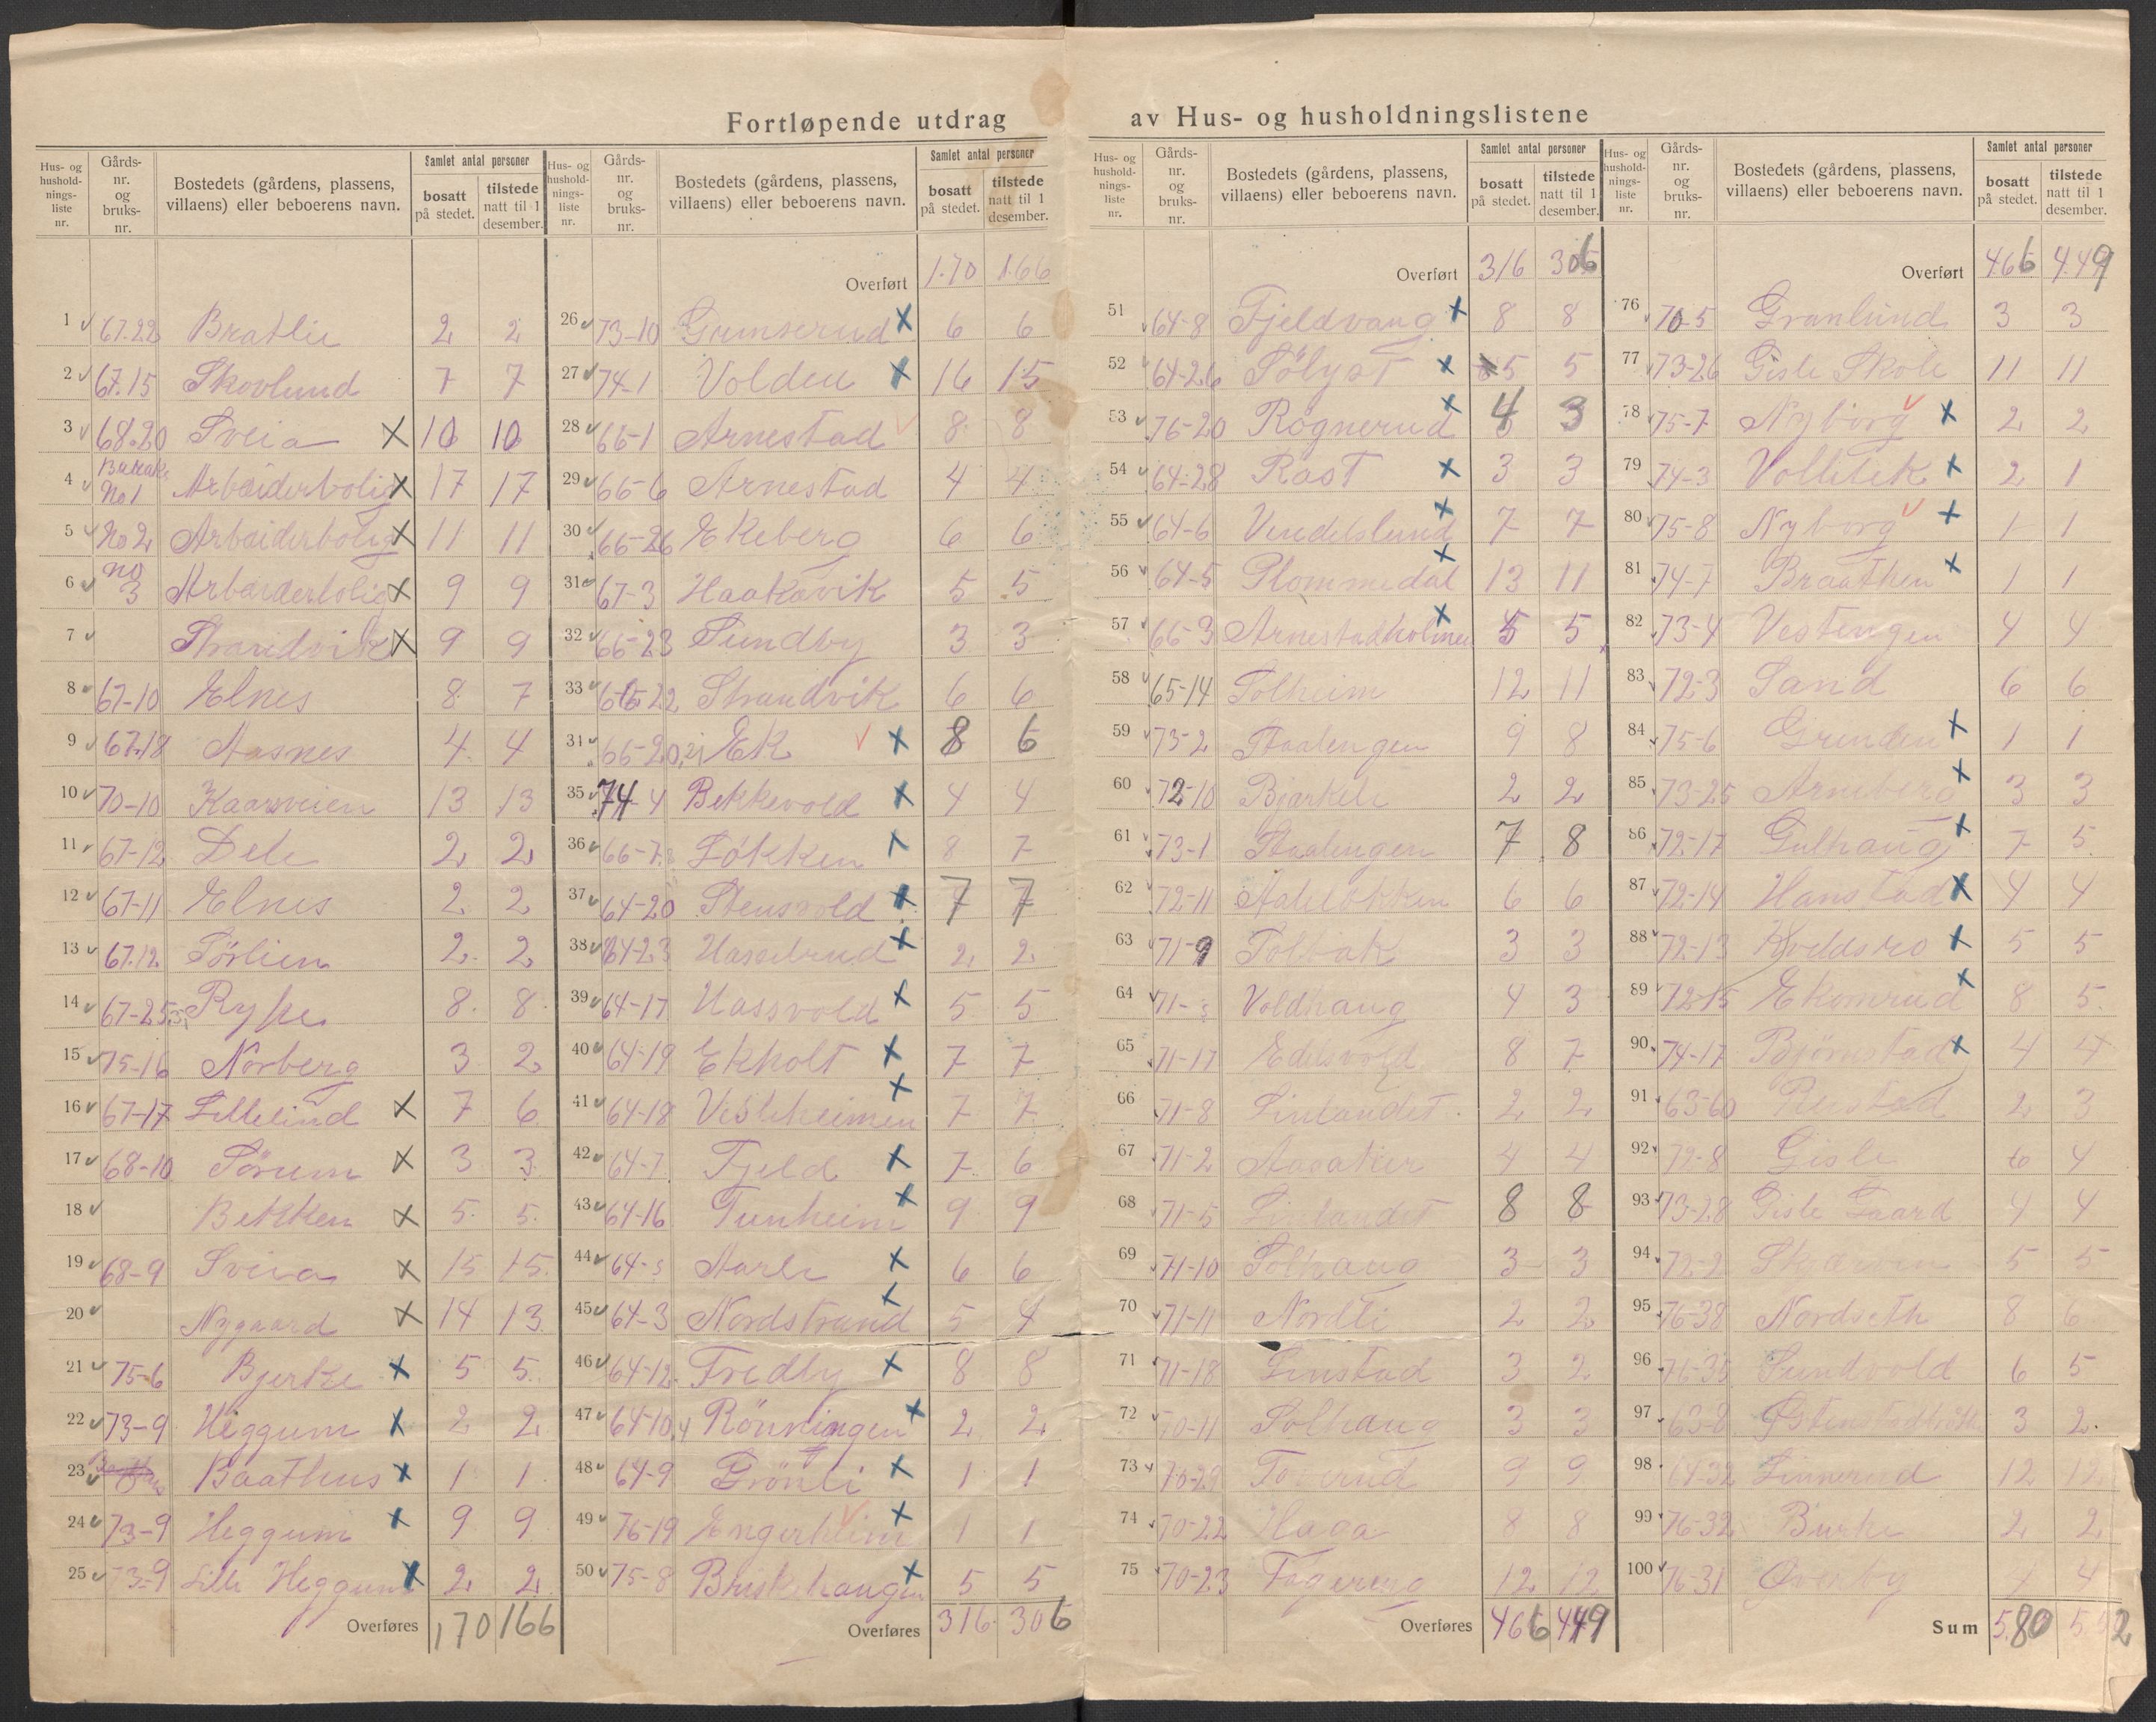 Fortløpende utdrag av Hus- og husholdningslistene
Hus- og husholdningsliste nr.
Gårds-nr. og bruks-nr.
Bostedets (gårdens, plassens, villaens) eller beboerens navn.
Samlet antal personer
bosatt på stedet.
tilstede natt til 1 desember.
1 67.22 Bratlie 2 2
2 67.15 Skovlund 7 7
3 68.20 Sveia X 10 10
4 Barak No 1 Arbæiderbolig X 17 17
5 No 2 Arbæiderbolig X 11 11
6 No 3 Arbæiderbolig X 9 9
7 Strandvik X 9 9
8 67-10 Elnes 8 7
9 67.18 Aasnes 4 4
10 70-10 Kaarsveien 13 13
11 67-12 Dele 2 2
12 67-11 Elnes 2 2
13 67.12 Sørlien 2 2
14 67-25 Rypes 8 8
15 75-16 Norberg 3 2
16 67-17 Lillelind X 7 6
17 68-10 Sörum X 3 3
18 Bekken X 5 5
19 68-9 Sveia X 15 15
20 Nygaard X 14 13
21 75-6 Bjerke X 5 5
22 73-9 Heggum X 2 2
23 Baathus X 1 1
24 73-9 Heggum X 9 9
25 73-9 Lille Heggum X 2 2
Overføres 170 166
Hus- og husholdningsliste nr.
Gårds-nr. og bruks-nr.
Bostedets (gårdens, plassens, villaens) eller beboerens navn.
Samlet antal personer
bosatt på stedet.
tilstede natt til 1 desember.
Overført 170 166
26 73-10 Gunserud X 6 6
27 74-1 Volden X 16 15
28 66-1 Arnestad 8 8
29 66-6 Arnestad 4 4
30 66-26 Ekeberg 6 6
31 67-3 Haakavik 5 5
32 66-23 Sundby 3 3
33 66-22 Strandvik 6 6
34 66-20,21 Ek X 8 6
35 74-4 Bekkevold X 4 4
36 66-7 Løkken 8 7
37 64-20 Stensvold X 7 7
38 64-23 Hasselrud X 2 2
39 64-17 Hassvold X 5 5
40 64-19 Ekholt X 7 7
41 64-18 Vesleheimen X 7 7
42 64-7 Fjeld X 7 6
43 64-16 Tunheim X 9 9
44 64-5 Aarli X 6 6
45 64-3 Nordstrand X 5 4
46 64-12 Fredly X 8 8
47 64-10,4 Rönningen X 2 2
48 64-9 Grönli X 1 1
49 76-19 Engerheim X 1 1
50 75-8 Briskehaugen X 5 5
Overføres 316 306
Hus- og husholdningsliste nr.
Gårds-nr. og bruks-nr.
Bostedets (gårdens, plassens, villaens) eller beboerens navn.
Samlet antal personer
bosatt på stedet.
tilstede natt til 1 desember.
Overført 316 306
51 64-8 Fjeldvang X 8 8
52 64-26 Sölyst X 5 5
53 76-20 Rognerud X 4 3
54 64-28 Rast X 3 3
55 64-6 Vendelslund X 7 7
56 64-5 Plommedal X 13 11
57 66-3 Arnestadholmen X 5 5
58 65-14 Solheim 12 11
59 73-2 Staalengen 9 8
60 72-10 Bjørkeli 2 2
61 73-1 Staalengen 7 8
62 72-11 Aaleløkken 6 6
63 71-9 Solbak 3 3
64 71- Voldhaug 4 3
65 71-17 Edelsvold 8 7
66 71-8 Linlandet 2 2
67 71-2 Aaraaker 4 4
68 71-5 Linlandet 8 8
69 71-10 Solhaug 3 3
70 71-11 Nordli 2 2
71 71-18 Linstad 3 2
72 70-11 Solhaug 3 3
73 73-29 9 9
74 70-22 Haga 8 8
75 70-23 Fagereng 12 12
Overføres 466 449
Hus- og husholdningsliste nr.
Gårds-nr. og bruks-nr.
Bostedets (gårdens, plassens, villaens) eller beboerens navn.
Samlet antal personer
bosatt på stedet.
tilstede natt til 1 desember.
Overført 466 449
76 70-5 Granlund 3 3
77 73-26 Gisle Skole 11 11
78 75-7 Nyborg X 2 2
79 74-3 Vollelek X 2 1
80 75-8 Nyborg X 1 1
81 74-7 Braathen X 1 1
82 73-4 Vestengen 4 4
83 72-3 Sand 6 6
84 75-6 Grenden X 1 1
85 73-25 Arneberg X 3 3
86 72-17 Gulhaug X 7 5
87 72-14 Hanstad X 4 4
88 72-13 Kveldsro X 5 5
89 72-15 Ekornrud X 8 5
90 74-17 Bjørnstad X 4 4
91 63-60 2 3
92 72-8 Gisle 6 4
93 73-28 Gisle Gaard 4 4
94 72-2 5 5
95 76-38 Nordseth 8 6
96 76-35 Sundvold 6 5
97 63-8 3 2
98 64-32 Linnerud 12 12
99 76-32 2 2
100 76-31 Øverby 4 4
Sum 580 552